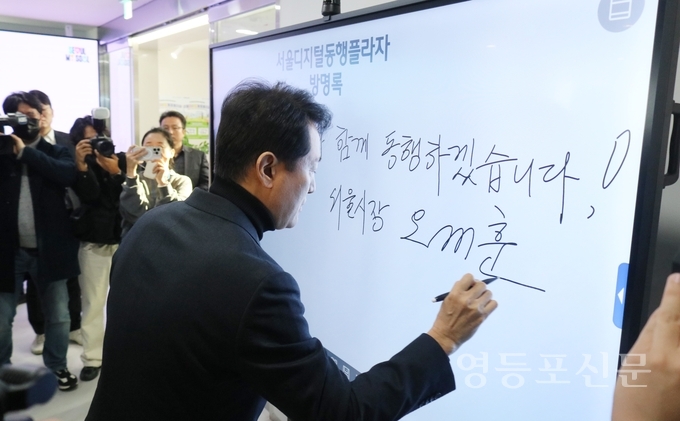 서울디지털동행플라자
방명록
함께 동행하겠습니다,
서울시장 오세훈
SEOUL
MY SOUL
영등포신문